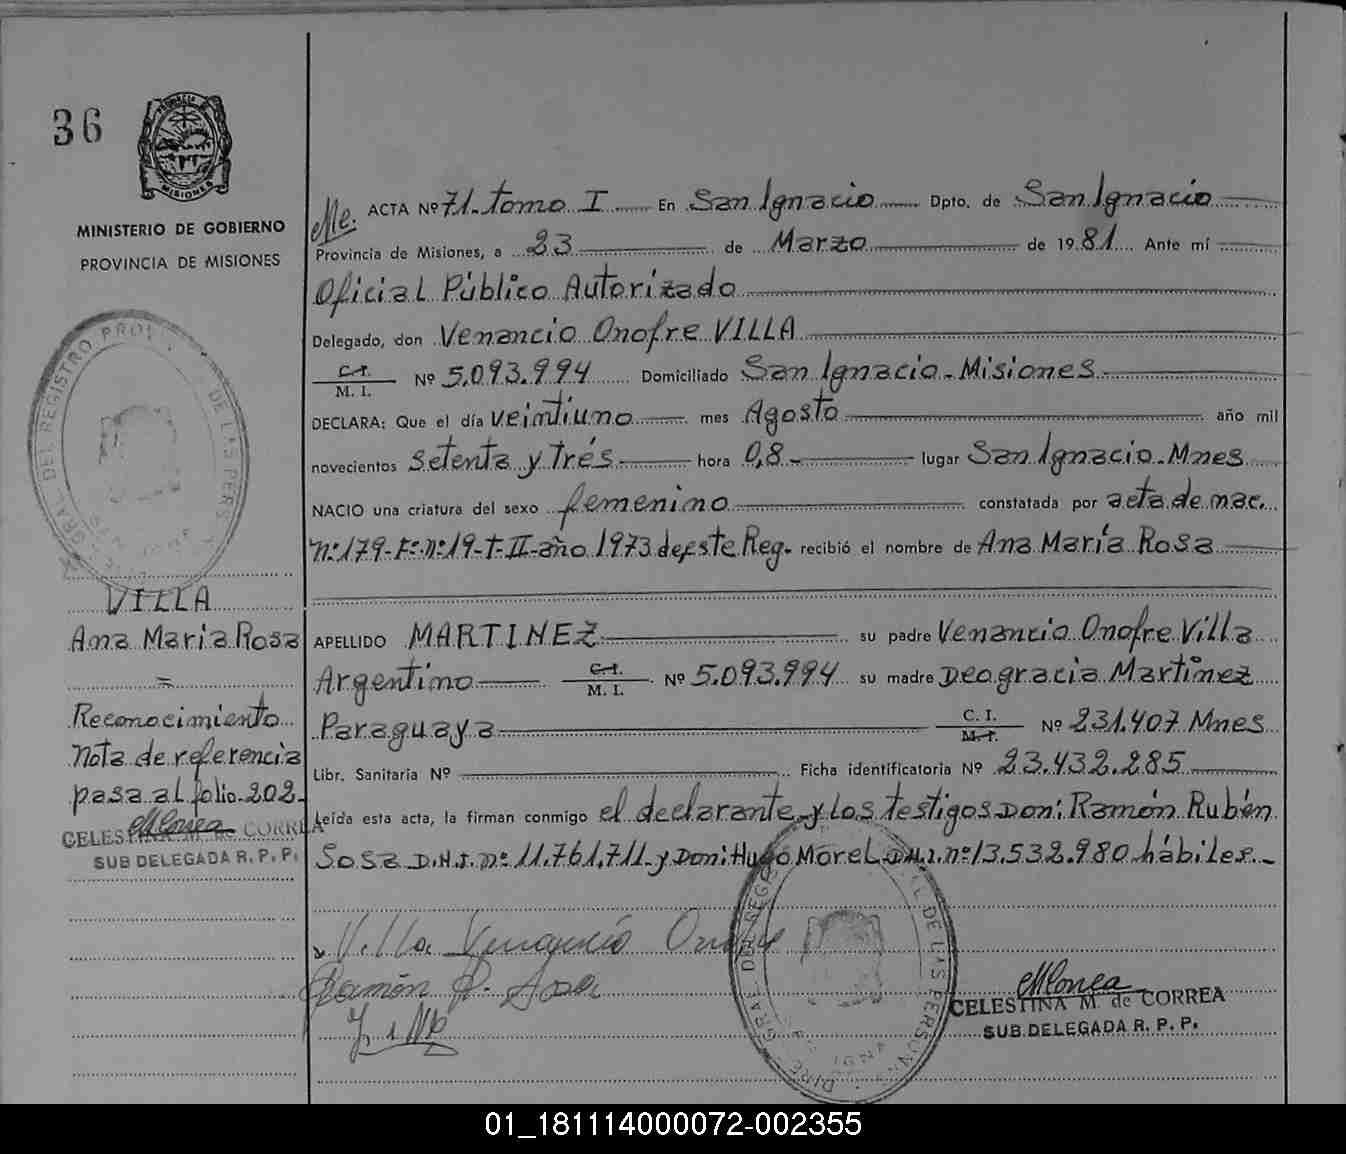 36
PROVINCIA DE
MISIONES
MINISTERIO DE GOBIERNO
PROVINCIA DE MISIONES
DEL REGISTRO PROV. DE LAS PERS.
VILLA
Ana María Rosa
=
Reconocimiento
Nota de referencia
pasa al folio 202-
CELESTINA M. de CORREA
SUB DELEGADA R. P. P.
ACTA Nº 71- tomo I En San Ignacio Dpto. de San Ignacio
Provincia de Misiones, a 23 de Marzo de 1981 Ante mí
Oficial Público Autorizado
Delegado, don Venancio Onofre VILLA
C.I.
M. I. Nº 5.093.994 Domiciliado San Ignacio - Misiones
DECLARA: Que el día veintiuno mes Agosto año mil
novecientos setenta y trés hora 0,8 lugar San Ignacio - Mnes
NACIO una criatura del sexo femenino constatada por acta de nac.
nº 179-Fº nº 19-T-II-año 1973 de este Reg. recibió el nombre de Ana María Rosa
APELLIDO MARTINEZ su padre Venancio Onofre Villa
Argentino C.I.
M. I. Nº 5.093.994 su madre Deogracia Martínez
Paraguaya C. I.
M.I. Nº 231.407 Mnes
Libr. Sanitaria Nº Ficha identificatoria Nº 23.432.285
Leída esta acta, la firman conmigo el declarante y los testigos Don: Ramón Rubén
Sosa D.N.I. nº 11.761.711- y Don: Hugo Morel D.N.I. nº 13.532.980 hábiles.-
Villa Venancio Onofre
Ramón R. Sosa
CELESTINA M. de CORREA
SUB DELEGADA R. P. P.
01_181114000072-002355